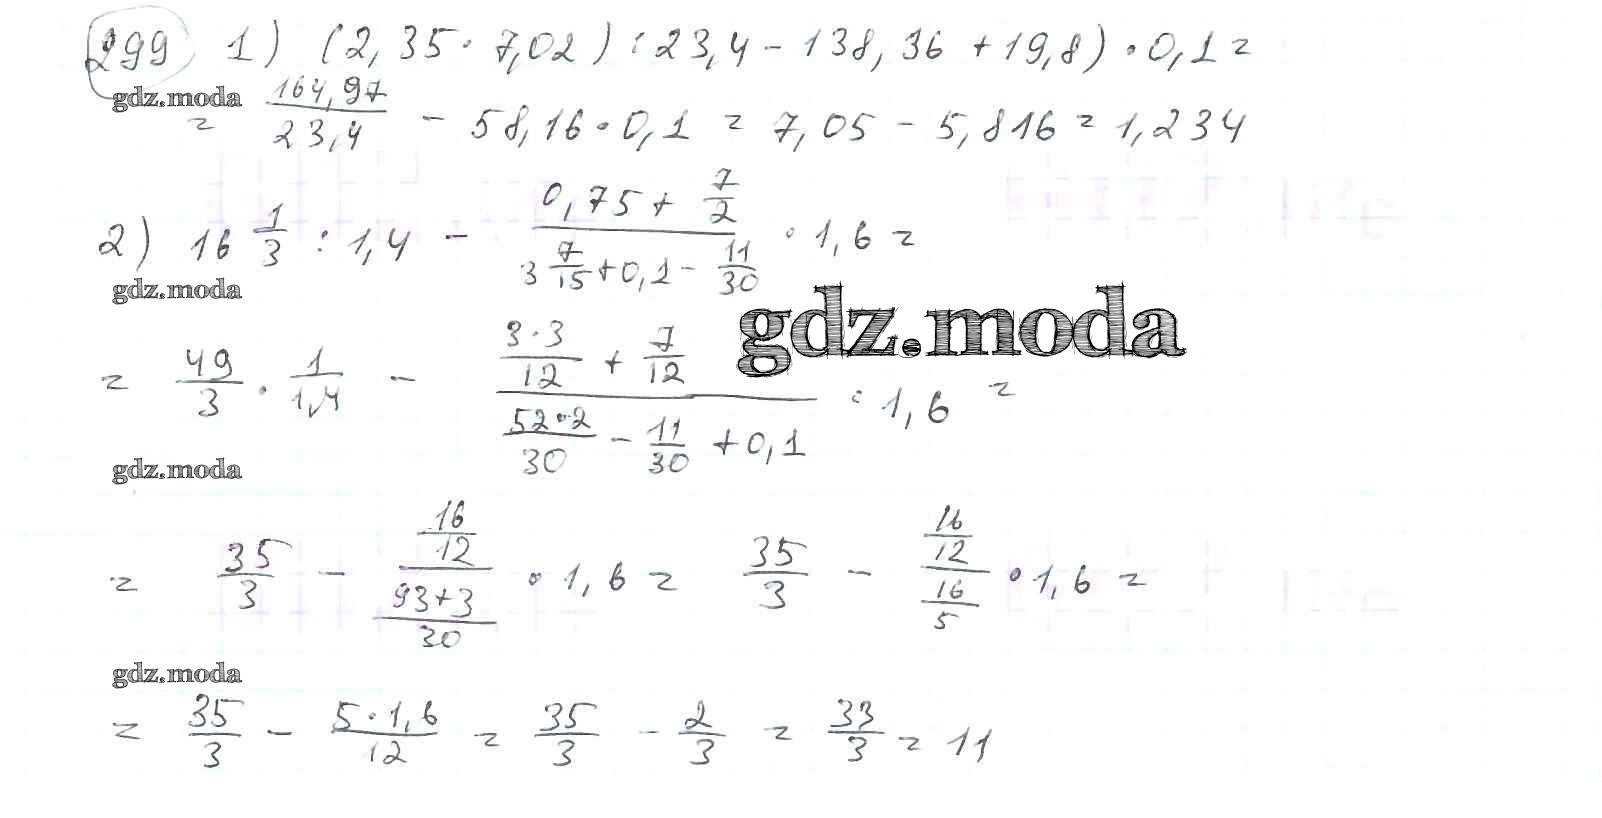 299 1) (2,35 · 7,02) : 23,4 - 138,36 + 19,8) · 0,1 =
gdz.moda
= 164,97/23,4 - 58,16 · 0,1 = 7,05 - 5,816 = 1,234
2) 16 1/3 : 1,4 - (0,75 + 7/2)/(3 7/15 + 0,1 - 11/30) · 1,6 =
gdz.moda
gdz.moda
= 49/3 · 1/1,4 - (3·3/12 + 7/12)/(52·2/30 - 11/30 + 0,1) : 1,6 =
gdz.moda
= 35/3 - (16/12)/((93+3)/30) · 1,6 = 35/3 - (16/12)/(16/5) · 1,6 =
gdz.moda
= 35/3 - 5·1,6/12 = 35/3 - 2/3 = 33/3 = 11